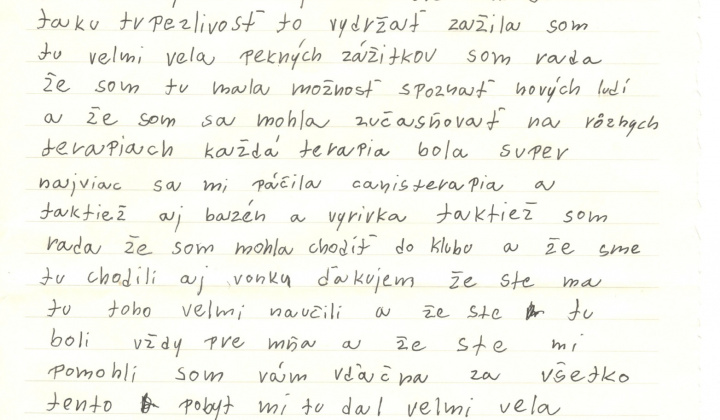 takú trpezlivosť to vydržať zažila som
tu velmi vela pekných zážitkov som rada
že som tu mala možnosť spoznať nových ludí
a že som sa mohla zučasňovať na rôznych
terapiach každá terapia bola super
najviac sa mi páčila canisterapia a
taktiež aj bazén a vyrivka taktiež som
rada že som mohla chodiť do klubu a že sme
tu chodili aj vonku ďakujem že ste ma
tu toho velmi naučili a že ste tu
boli vždy pre mňa a že ste mi
pomohli som vám vďačna za všetko
tento pobyt mi tu dal velmi vela